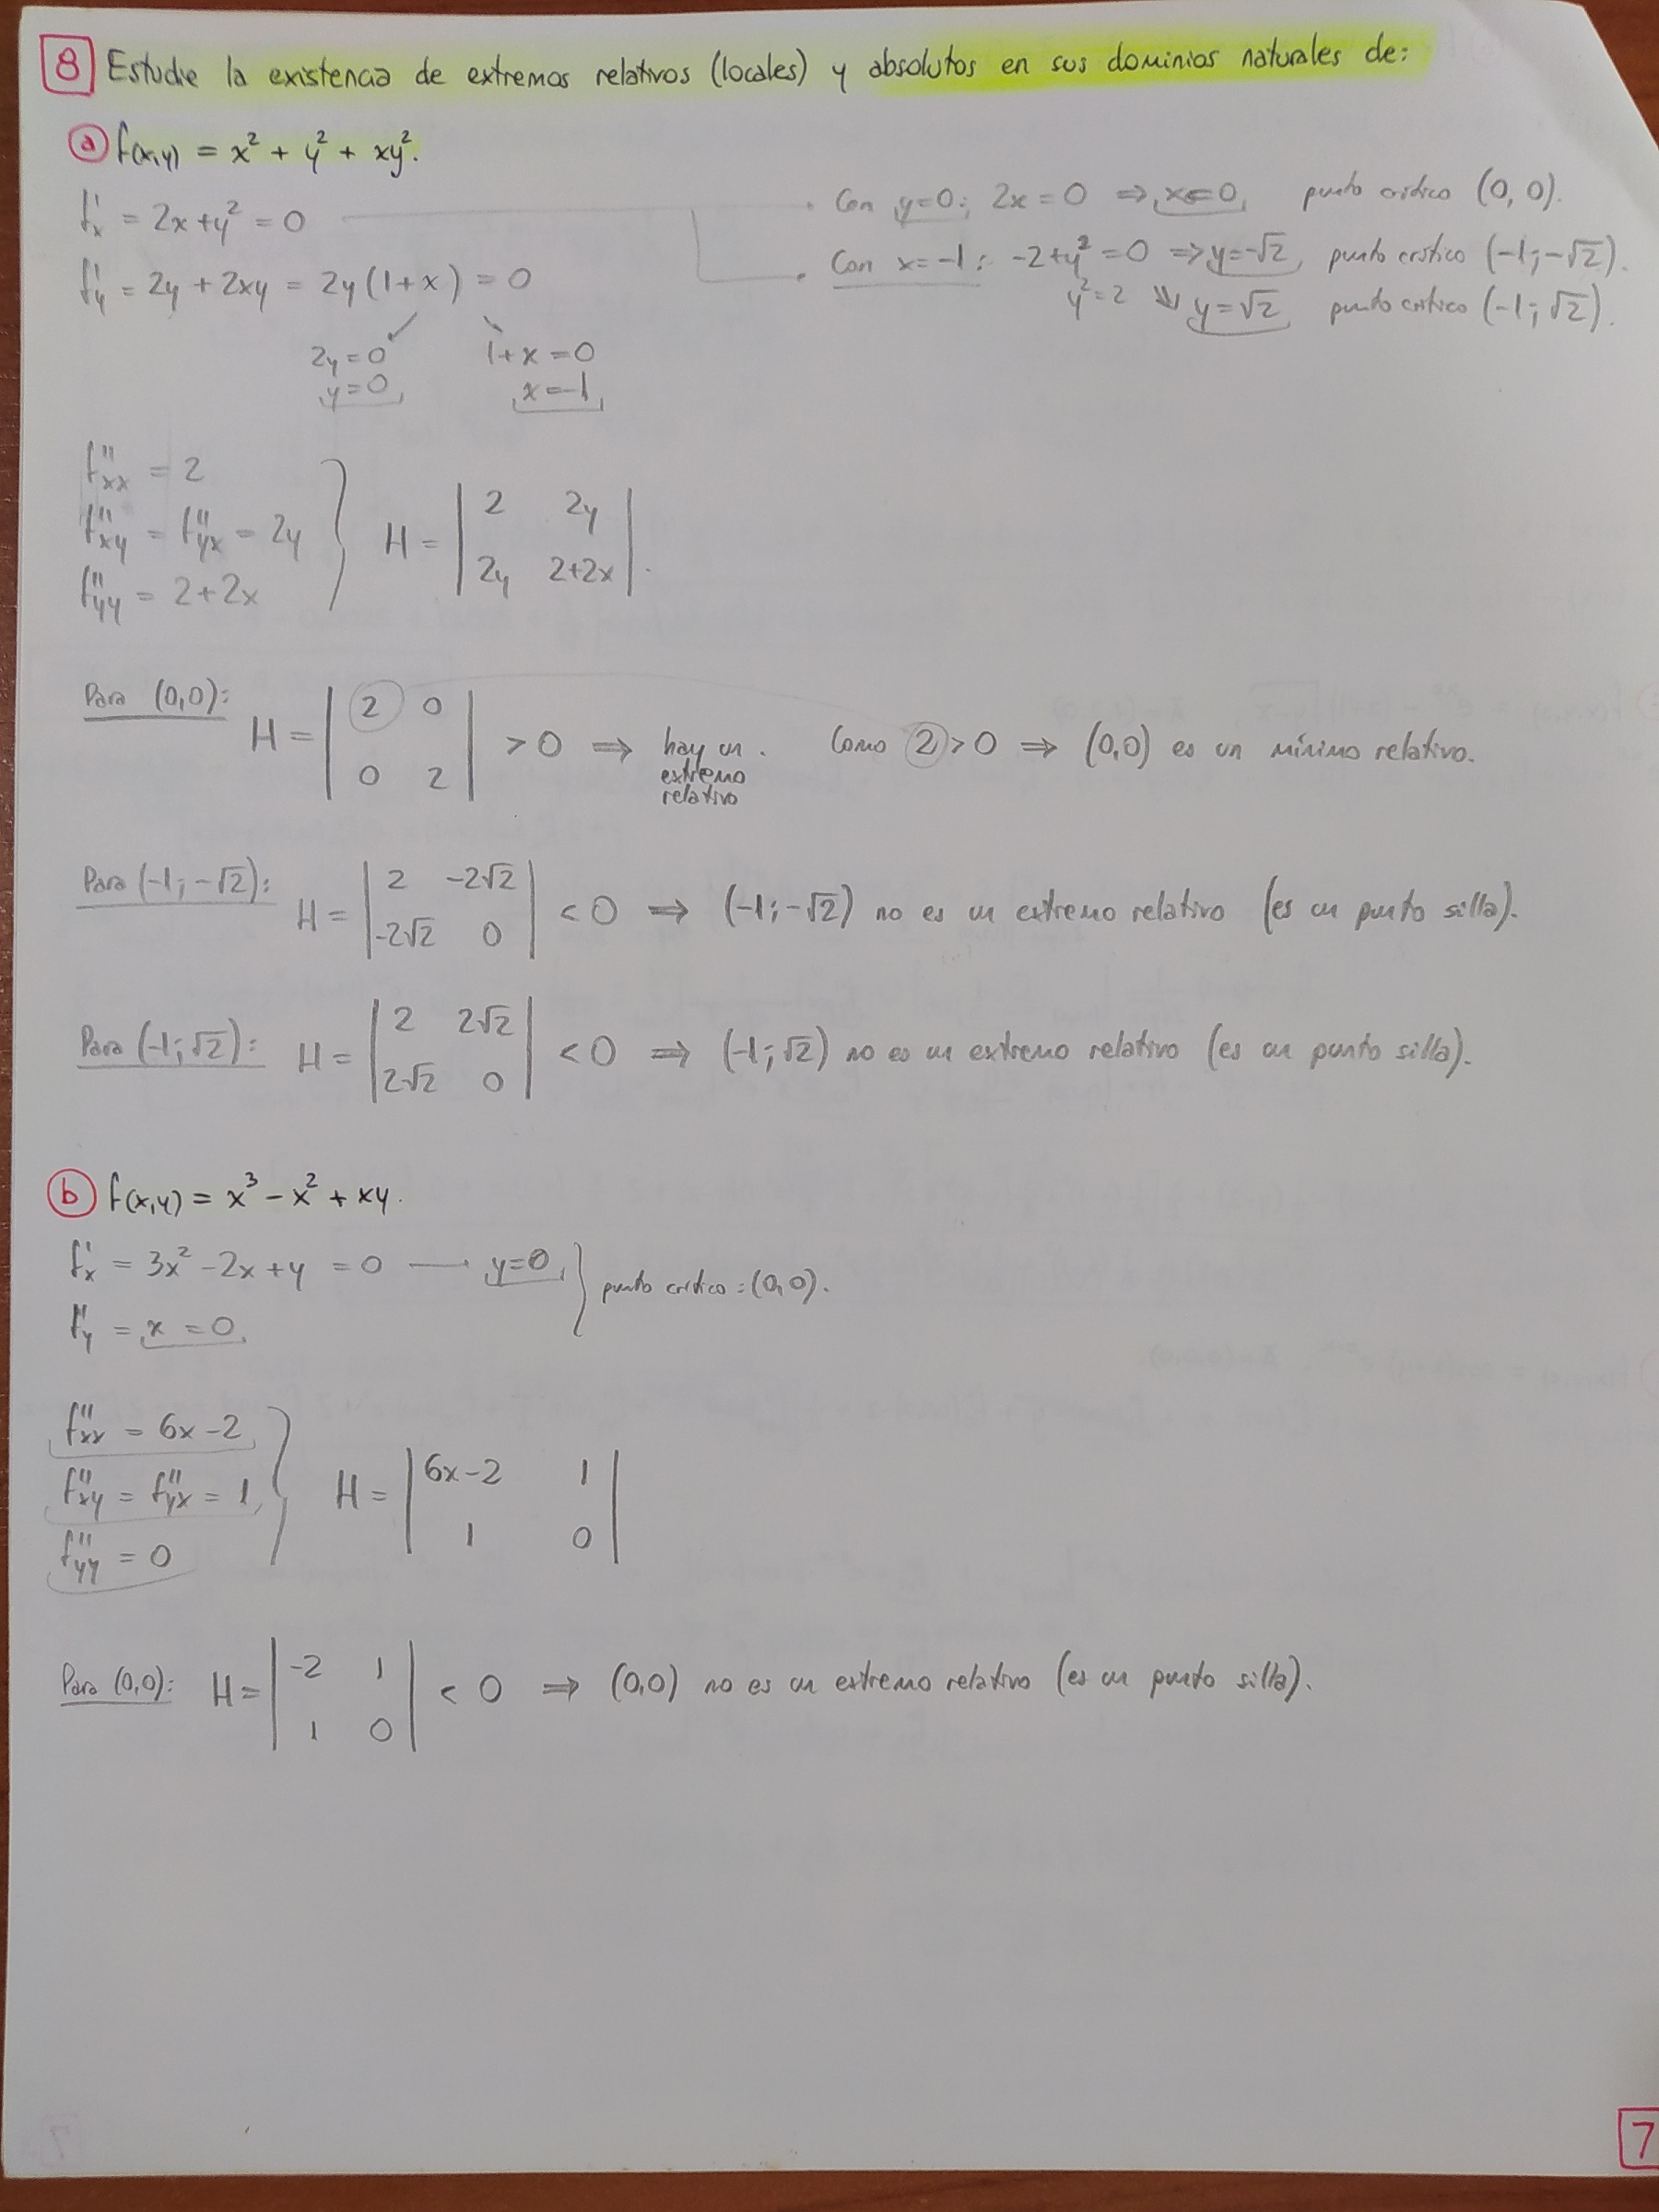 8 Estudie la existencia de extremos relativos (locales) y absolutos en sus dominios naturales de:
a f(x,y) = x² + y² + xy².
f'x = 2x+y² = 0
f'y = 2y + 2xy = 2y(1+x) = 0
2y=0 1+x=0
y=0 x=-1
Con y=0: 2x=0 ⇒ x=0, punto crítico (0,0).
Con x=-1: -2+y²=0 ⇒ y=-√2, punto crítico (-1;-√2).
y²=2 ⇒ y=√2, punto crítico (-1;√2).
f''xx = 2
f''xy = f''yx = 2y
f''yy = 2+2x
H = | 2 2y |
| 2y 2+2x |.
Para (0,0):
H = | 2 0 | > 0 ⇒ hay un extremo relativo. Como 2>0 ⇒ (0,0) es un mínimo relativo.
| 0 2 |
Para (-1;-√2):
H = | 2 -2√2 | < 0 ⇒ (-1;-√2) no es un extremo relativo (es un punto silla).
| -2√2 0 |
Para (-1;√2):
H = | 2 2√2 | < 0 ⇒ (-1;√2) no es un extremo relativo (es un punto silla).
| 2√2 0 |
b f(x,y) = x³ - x² + xy.
f'x = 3x² - 2x + y = 0 — y=0 } punto crítico: (0,0).
f'y = x = 0
f''xx = 6x-2
f''xy = f''yx = 1
f''yy = 0
H = | 6x-2 1 |
| 1 0 |
Para (0,0): H = | -2 1 | < 0 ⇒ (0,0) no es un extremo relativo (es un punto silla).
| 1 0 |
7